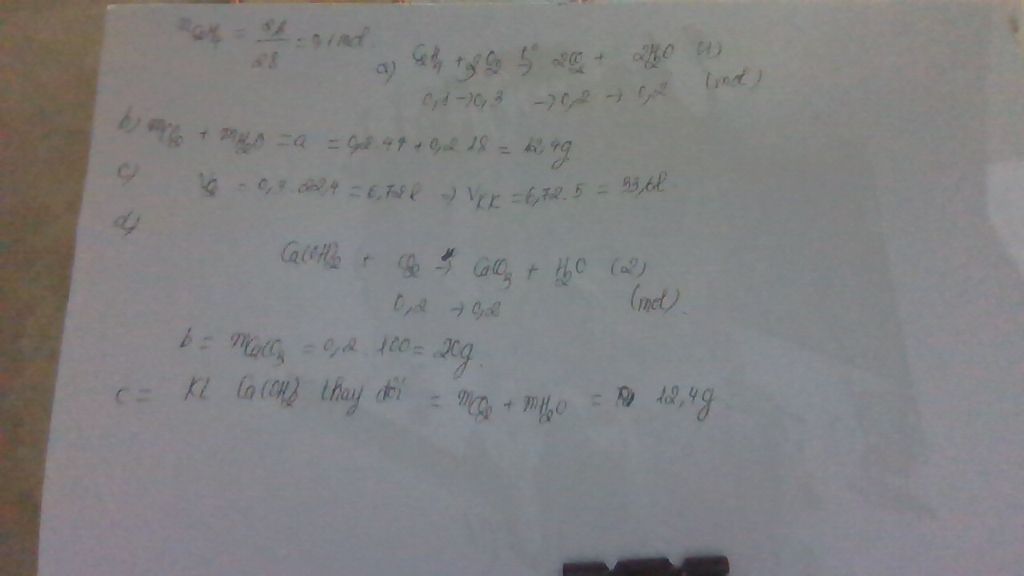 nC2H4 = 2,8/28 = 0,1 mol
a) C2H4 + 3O2 t°→ 2CO2 + 2H2O (1)
0,1 → 0,3 → 0,2 → 0,2 (mol)
b) mCO2 + mH2O = a = 0,2.44 + 0,2.18 = 12,4g
c) VO2 = 0,3.22,4 = 6,72l → VKK = 6,72.5 = 33,6l
d)
Ca(OH)2 + CO2 → CaCO3 + H2O (2)
0,2 → 0,2 (mol)
b = mCaCO3 = 0,2.100 = 20g.
c = KL Ca(OH)2 thay đổi = mCO2 + mH2O = 12,4g